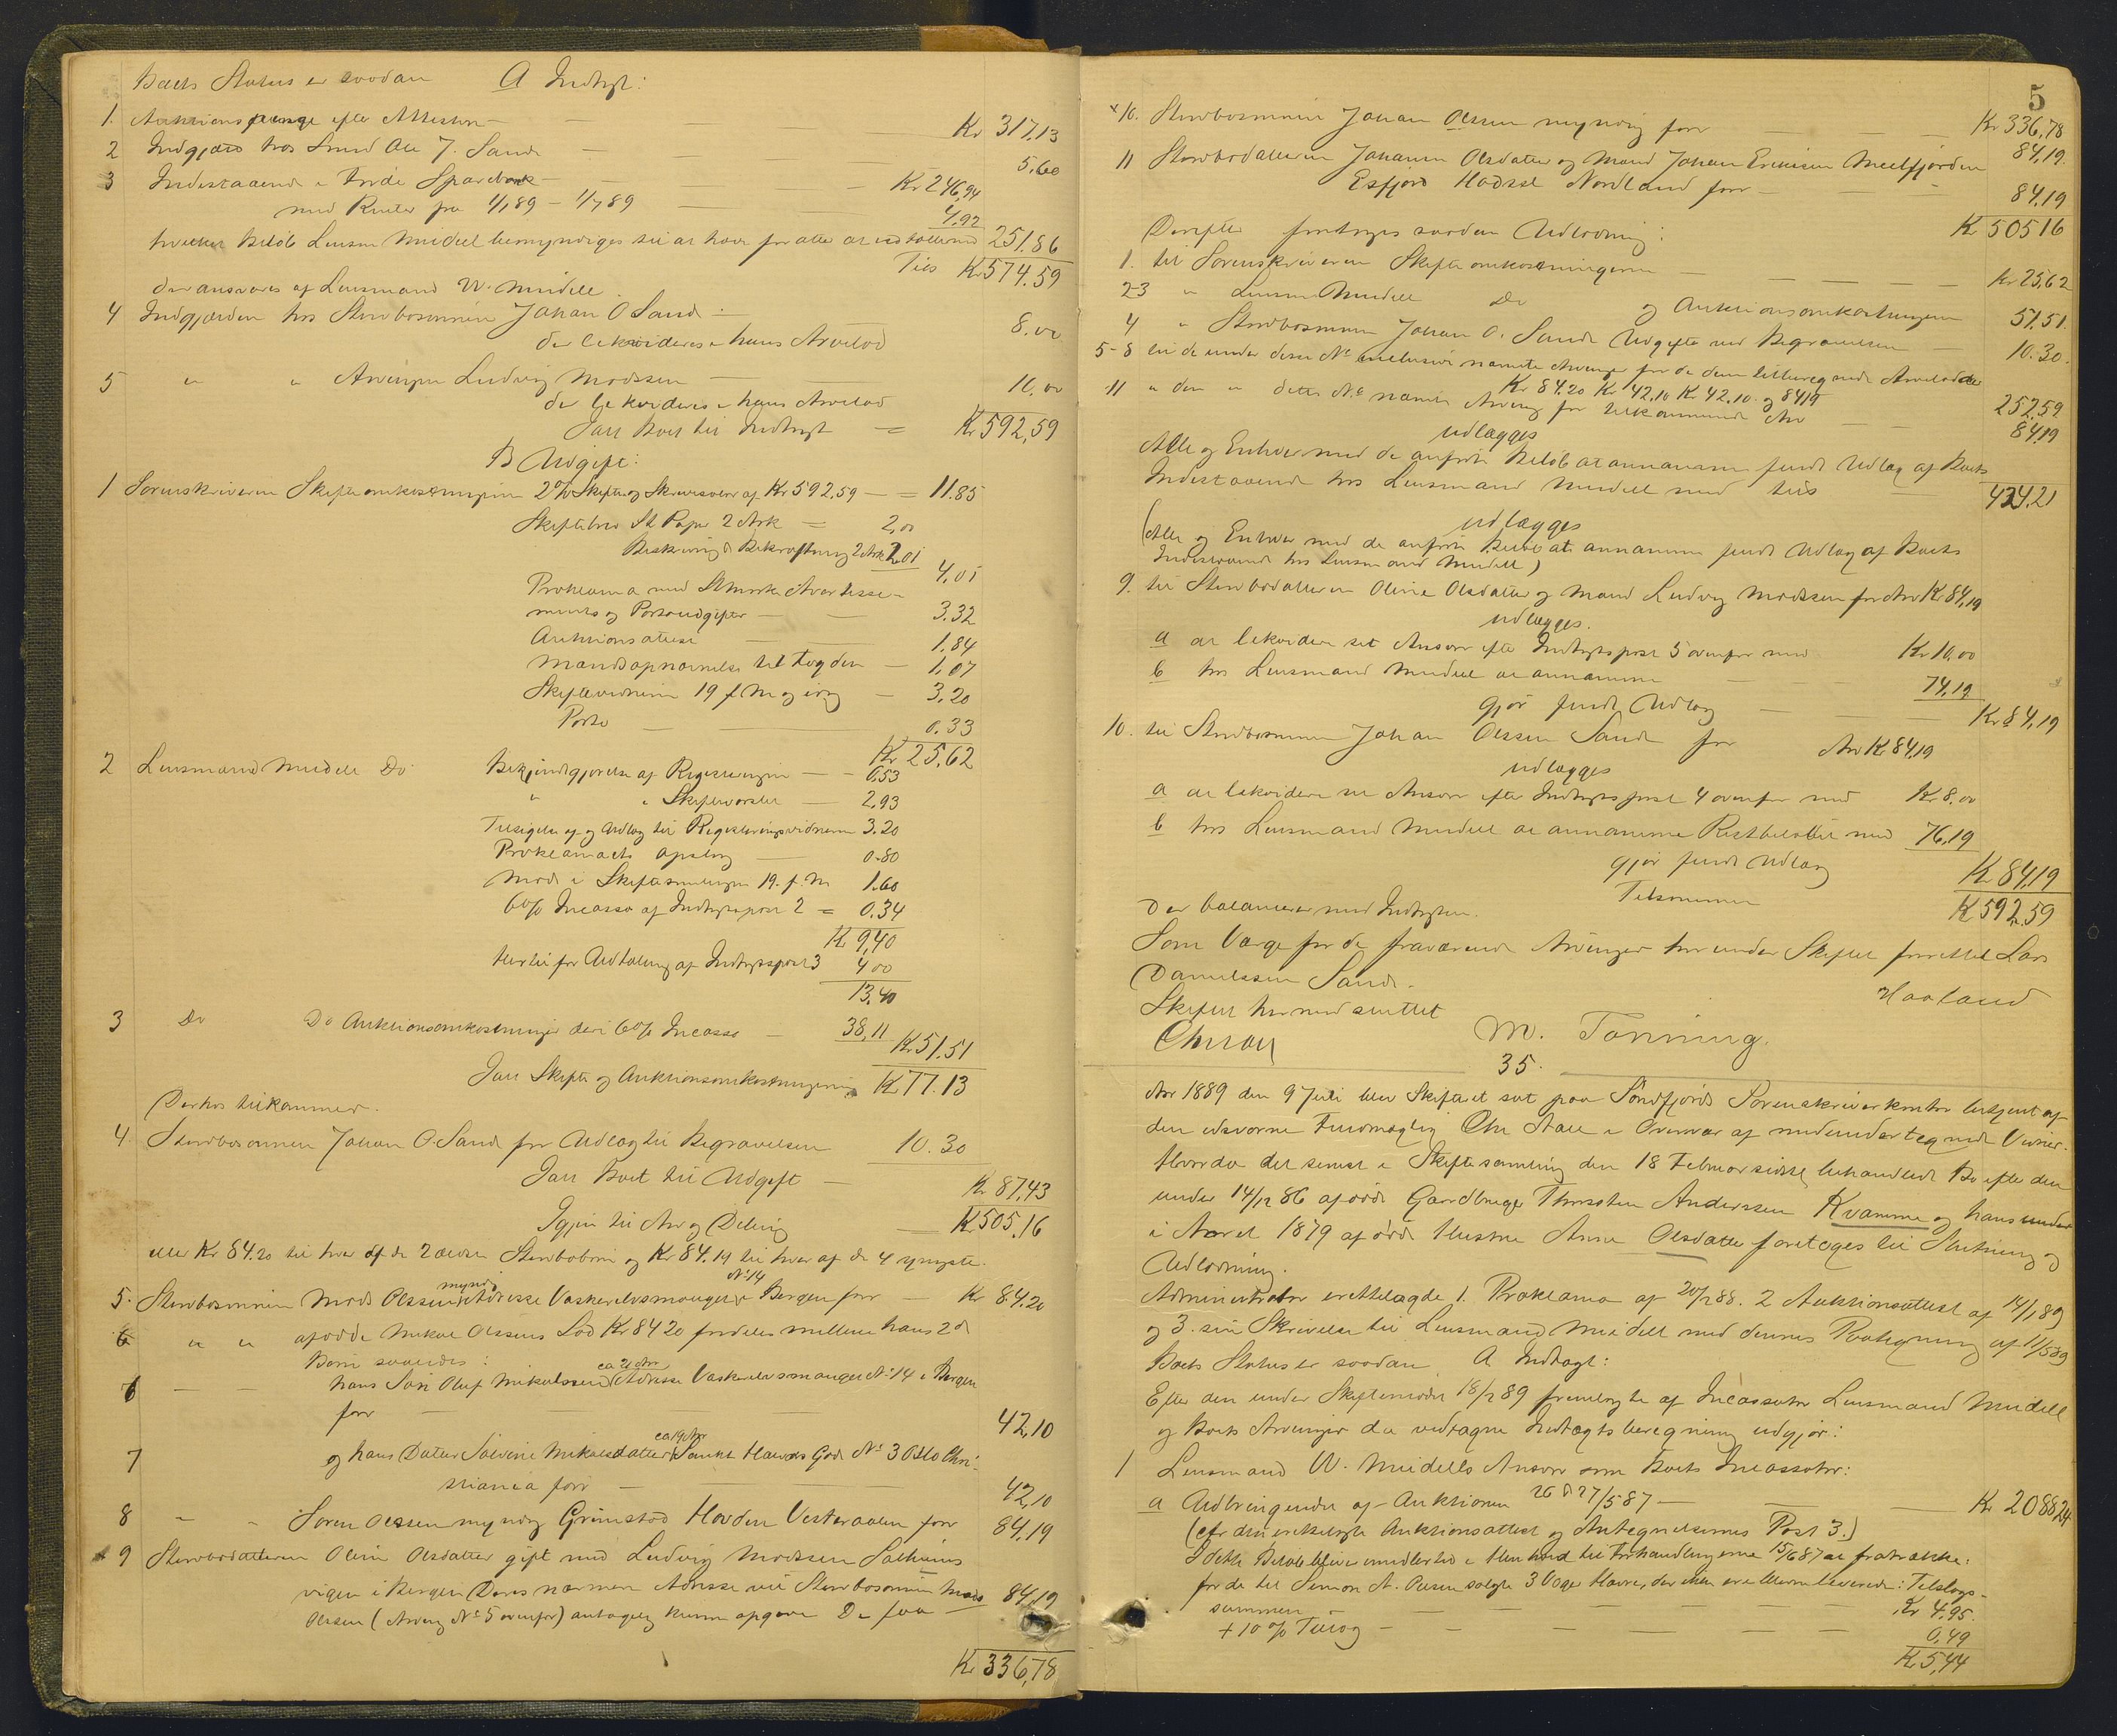 Boets Status er saadan A Indtægt:
1. Auktionspenge efter Attesten — Kr 317,13
2 Indgjæld hos Smed Ole J. Sande — 5.60
3 Indestaaende i Førde Sparebank — Kr 246,94
med Renter fra 1/1 89 – 1/7 89 — 4.92
hvilket Beløb Lensm Meidell bemyndiges til at hæve for atter at udbetale med 251.86
Tils Kr 574.59
der ansvares af Lensmand W. Meidell.
4 Indgjælden hos Stervbosønnen Johan O Sande — 8.00
der likvideres i hans Arvelod
5 " " Arvingen Ludvig Madssen — 10,00
der likvideres i hans Arvelod
Jalt Boet til Indtægt = Kr 592,59
B Udgift:
1 Sorenskriveren Skifteomkostningerne 2% Skifte og Skriversalær af Kr 592.59 — = 11.85
Skiftebrev St Papir 2 Ark = 2,00
Beskrivning & Bekræftning 2 Ark 2.01
4,01
Proklama med St Mærke Avertisse-
ments og Portoudgifter — 3.32
Auktionsattest — 1.84
Mandsopnævnelse til Fogden — 1,07
Skiftevidnerne 19 f M og idag — 3.20
Porto — 0.33
Kr 25,62
2 Lensmand Meidell Do Bekjendtgjørelse af Registreringen — 0,53
" " Skiftevarslet — 2.93
Tilsigelse af og Udlæg til Registreringsvidnerne 3.20
Proklamaets Opslag — 0.80
Møde i Skiftesamlingen 19. f. M 1.60
6% Incasso af Indtægtspost 2 = 0.34
Kr 9,40
Hertil for Udbetaling af Indtægtspost 3 4 00
13.40
3 Do Do Auktionsomkostninger deri 6% Incasso — 38,11
Kr 51.51
Jalt Skifte og Auktionsomkostningerne Kr 77.13
Derhos tilkommer.
4. Stervbosønnen Johan O. Sande for Udlæg til Begravelsen 10.30
Jalt Boet til Udgift — Kr 87,43
Igjen til Arv og Deling — Kr 505,16
eller Kr 84.20 til hver af de 2 ældste Stervbobørn og Kr 84.19 til hver af de 4 yngste.
5. Stervbosønnen Mads Olssen myndig Adresse Vaskerelvsmauget No 14 i Bergen før — Kr 84.20
6 " " afdøde Mikal Olssens Lod Kr 84 20 fordeles mellem hans 2de
Børn saaledes:
6 — — hans Søn Oluf Mikalssen ca 21 Aar Adresse Vaskerelvsmauget No 14 i Bergen
før — 42,10
7 og hans Datter Salvine Mikalsdatter ca 19 Aar Sankt Halvards Gade No 3 Oslo Chri-
stiania før — 42,10
8 " " Søren Olssen myndig Grimstad Hovden Vesteraalen før 84,19
9 Stervbodatteren Oline Olsdatter gift med Ludvig Madssen Solheims
vigen i Bergen (Deres nærmere Adresse vil Stervbosønnen Mads 84,19
Olssen (Arving No 5 ovenfor) antagelig kunne opgive De faa
Kr 336,78
5
Kr 336,78
10. Stervbosønnen Johan Olssen myndig før — 84,19.
11 Stervbodatteren Johanna Olsdatter og Mand Johan Eriksen Meelfjorden
Esfjord Hadsel Nordland før — 84,19
Kr 505 16
Derefter foretages saadan Udlodning:
1. til Sorenskriveren Skifteomkostningerne — Kr 25,62
2-3 " Lensm Meidell Do og Auktionsomkostningerne 51.51.
4 " Stervbosønnen Johan O. Sande Udgifter ved Begravelsen — 10.30.
5-8 til de under disse No inclusive nævnte Arvinger for de dem tilberegnede Arvelodder
Kr 84.20 Kr 42,10 Kr 42.10 og 8419 252,59
11 " den " dette No nævnte Arving for tilkommende Arv — 84,19
udlægges
Alle og Enhver med de anførte Beløb at annamme fuldt Udlæg af Boets
Indestaaende hos Lensmand Meidell med tils — 424.21
udlægges
(Alle og Enhver med de anførte Beløb at annamme fuldt Udlæg af Boets
Indestaaende hos Lensmand Meidell)
9. til Stervbodatteren Oline Olsdatter og Mand Ludvig Madssen for Arv Kr 84,19
udlægges.
a at likvidere sit Ansvar efter Indtægtspost 5 ovenfor med Kr 10,00
b hos Lensmand Meidell at annamme — 74,19
gjør fuldt Udlæg — Kr 84,19
10. til Stervbosønnen Johan Olssen Sande for Arv Kr 84,19
udlægges
a at likvidere sit Ansvar efter Indtægtspost 4 ovenfor med Kr 8,00
b hos Lensmand Meidell at annamme Restbeløbet med 76,19
gjør fuldt Udlæg Kr 84,19
Tilsammen Kr 592,59
Der balancerer med Indtægten.
Som Værge for de fraværende Arvinger har under Skiftet forrettet Lars
Danielssen Sande.
Skiftet hermed sluttet Haaland
M. Tonning.
35.
Aar 1889 den 9 Juli blev Skifteret sat paa Søndfjords Sorenskriverkontor betjent af
den edsvorne Fuldmægtig Chr Stall i Overvær af medundertegnede Vidner.
Hvorda det senest i Skiftesamling den 18 Februar sidstl behandlede Bo efter den
under 14/12 86 afdøde Gaardbruger Thorsten Anderssen Kvamme og hans under
i Aaret 1879 afdøde Hustru Anna Olsdatter foretoges til Slutning og
Udlodning.
Administrator irettelagde 1. Proklama af 20/2 88. 2 Auktionsattest af 14/1 89
og 3. sin Skrivelse til Lensmand Meidell med dennes Paategning af 11/5 89
Boets Status er saadan A Indtægt:
Efter den under Skiftemødet 18/2 89 fremlagte af Incassator Lensmand Meidell
og Boets Arvinger da vedtagne Indtægtsberegning udgjør:
1 Lensmand W. Meidells Ansvar som Boets Incassator:
a Udbringendet af Auktionen 26 & 27/5 87 — Kr 2088,24
(cfr den irettelagte Auktionsattest og Antegnelsernes Post 3.)
I dette Beløb bliver imidlertid i Henhold til Forhandlingerne 15/6 87 at fratrække:
for de til Simon A. Olssen solgte 3 Voger Havre, der ikke ere bleven leverede: Tilslags-
summen — Kr 4,95.
+ 10 % Tillæg — 0,49
Kr 5,44